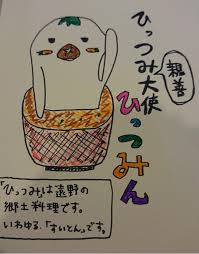 ひっつみ大使
親善
ひっつみん
「ひっつみ」は遠野の
郷土料理です。
いわゆる、「すいとん」です。